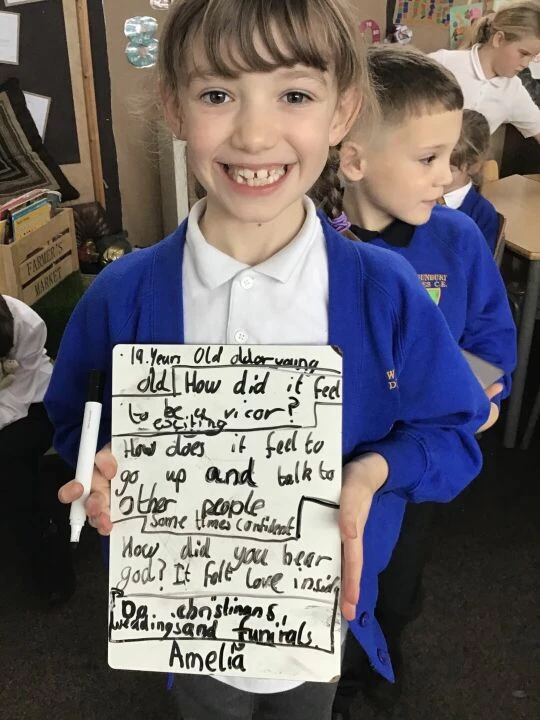 FARMER'S
MARKET
8
. 19. Years Old older young
old How did it feel
to be a vicor?
exciting
How does it feel to
go up and talk to
other people
some times confident
How did you hear
god? It felt love inside
Do christinans,
weddings and funirals.
Amelia